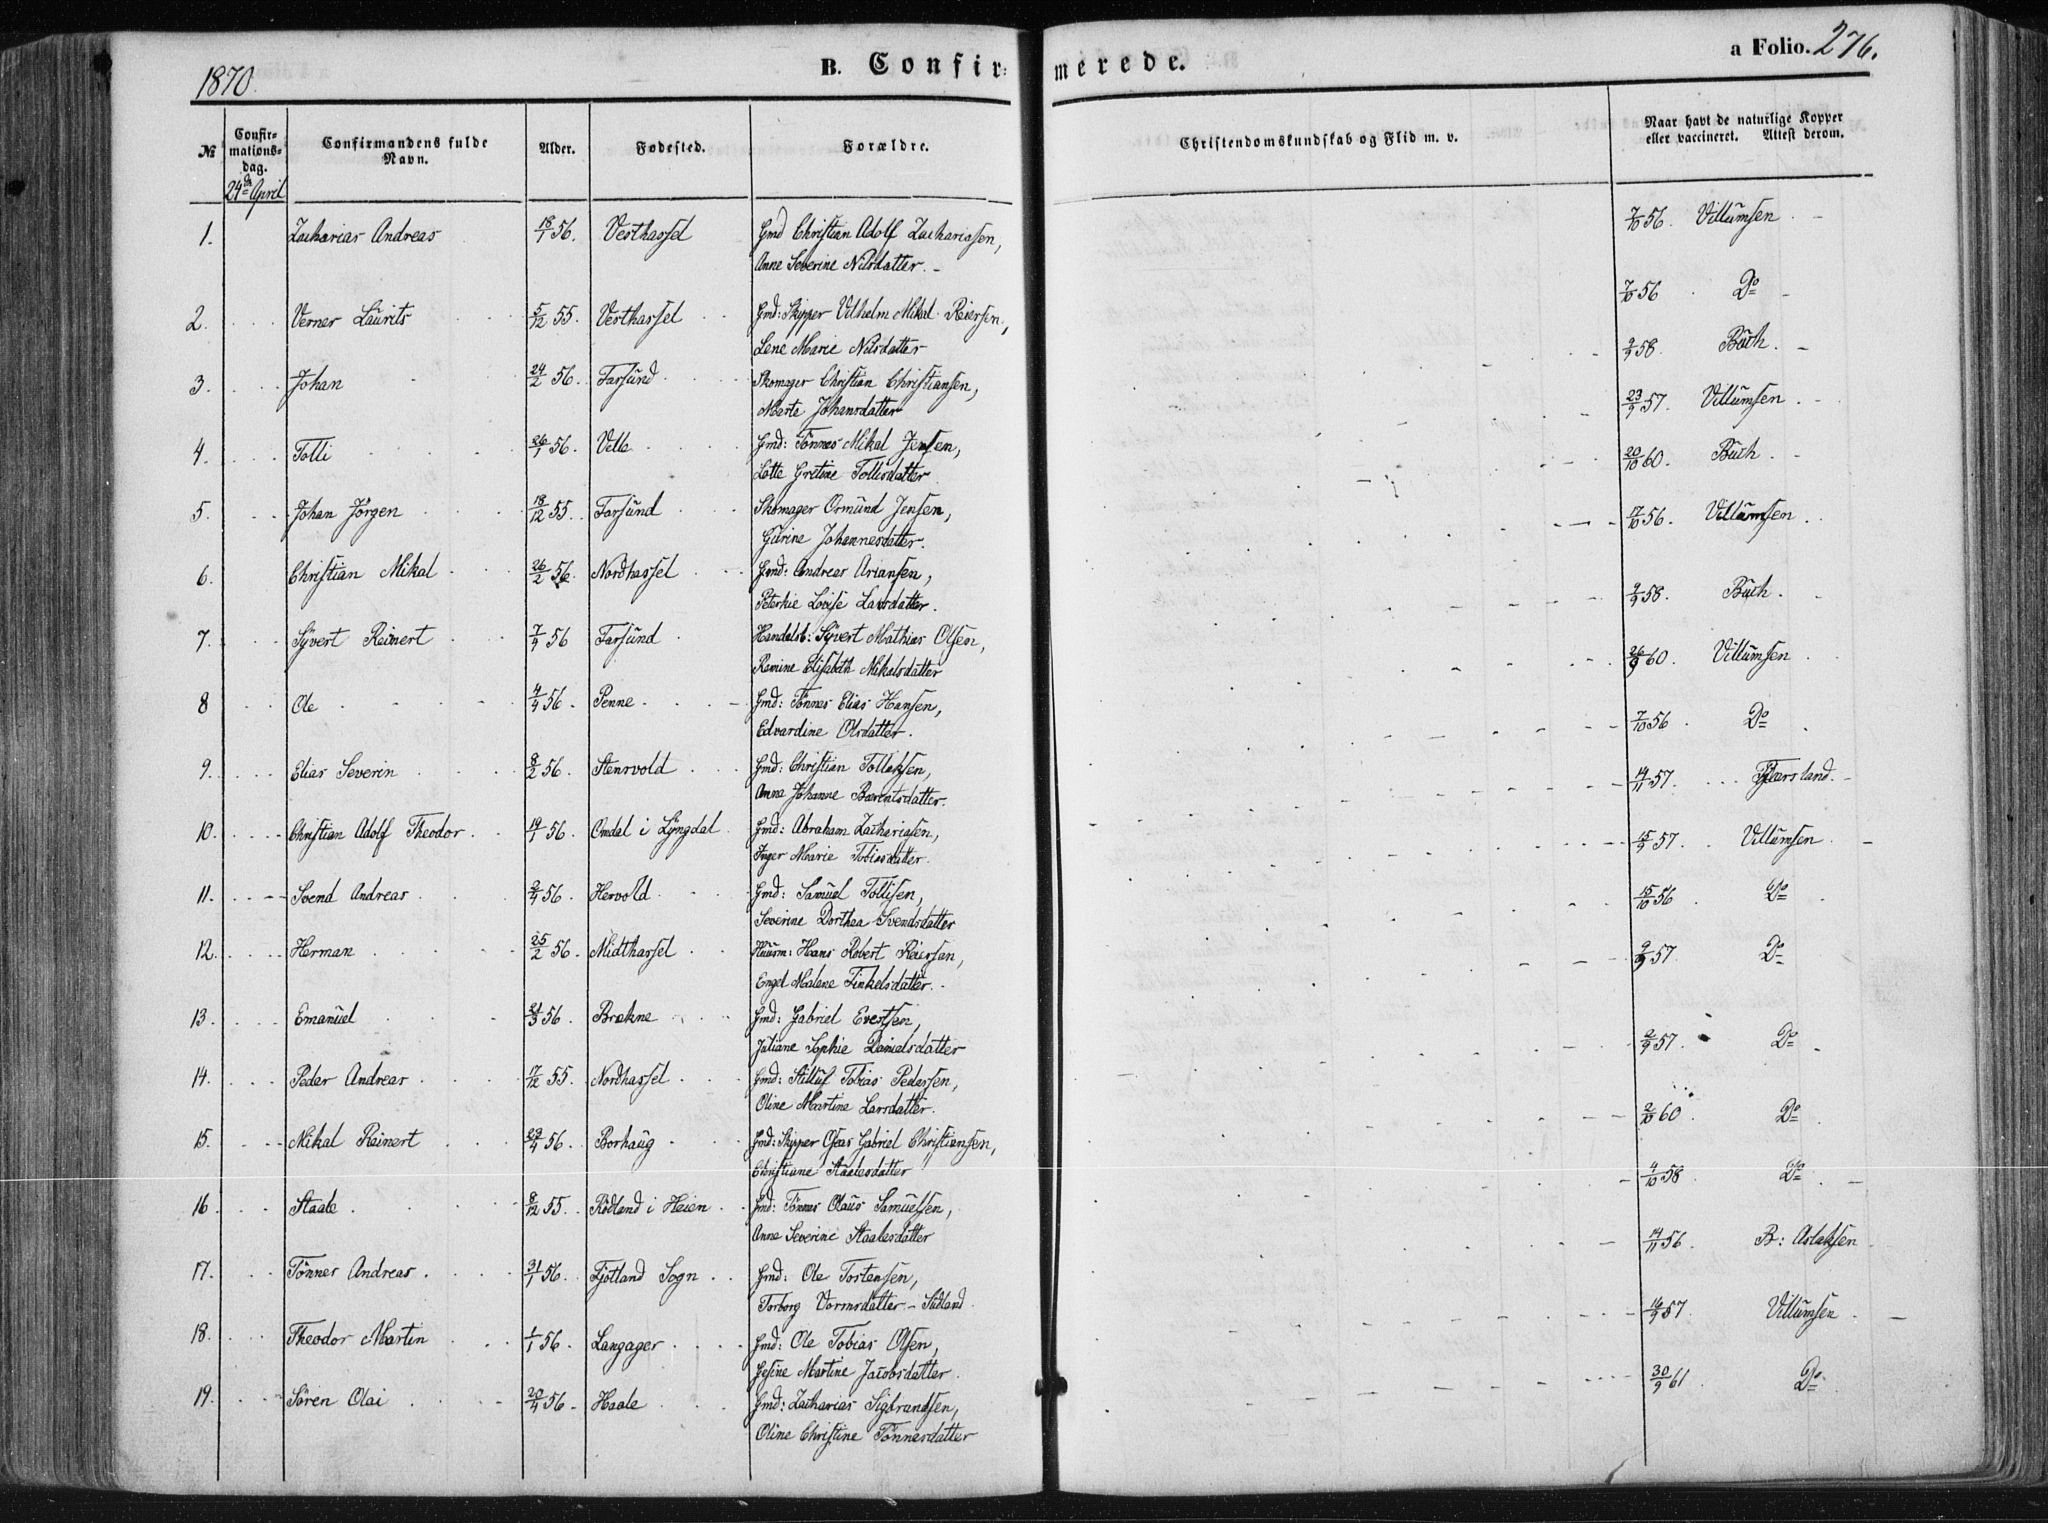 1870.
B. Confirmerede.
a Folio. 276.
№
Confirmationsdag.
Confirmandens fulde Navn.
Alder.
Fødested.
Forældre.
Christendomskundskab og Flid m. v.
Naar havt de naturlige Kopper eller vaccineret. Attest derom.
24de April
1. Zacharias Andreas 18/1 56. Vesthassel Gmd Christian Adolf Zachariasen, 7/10 56. Villumsen
Anne Severine Nilsdatter.
2. Verner Laurits 5/12 55. Vesthassel Gmd: Skipper Vilhelm Mikal Reiersen, 7/10 56 Do
Lene Marie Nilsdatter
3. Johan 24/2 56. Farsund Skomager Christian Christiansen, 2/9 58. Buch.
Marte Johansdatter
4. Tolli 26/1 56. Velle Gmd: Tønnes Mikal Jensen, 23/9 57. Villumsen
Lotte Gretine Tollisdatter
5. Johan Jørgen 18/12 55. Farsund Skomager Osmund Jensen, 20/10 60. Buch.
Gurine Johannesdatter.
6. Christian Mikal 26/2 56 Nordhassel Gmd: Andreas Ariansen, 17/10 56. Villumsen
Lovise Larsdatter.
7. Syvert Reinert 7/4 56 Farsund Handelsb: Syvert Mathias Olsen, 9/9 58. Buch.
Ramine Elisabeth Mikalsdatter
8 Ole 4/4 56. Penne Gmd: Tønnes Elias Hansen, 26/9 60. Villumsen
Edvardine Olsdatter.
9. Elias Severin 8/2 56. Stenrvold Gmd: Christian Tollaksen, 7/10 56 Do
Anna Johanne Barentsdatter.
10. Christian Adolf Theodor 19/1 56. Omdal i Lyngdal Gmd: Abraham Zachariasen, 14/11 57.
Inger Marie Tobiasdatter.
11. Svend Andreas 2/4 56. Hervold Gmd: Samuel Tollisen, 15/9 57. Villumsen
Severine Dorthea Svendsdatter
12. Herman 25/2 56. Midthassel Huusm: Hans Robert Reiersen, 15/10 56 Do
Engel Malene Finkelsdatter.
13. Emanuel 21/3 56. Brekne Gmd: Gabriel Evertsen, 9/9 57. Do
Juliane Sophie Danielsdatter
14. Peder Andreas 17/12 55. Nordhassel Gmd: Stilluf Tobias Pedersen, 2/9 57. Do
Oline Martine Larsdatter.
15. Mikal Reinert 29/4 56. Borhaug Gmd: Skipper Oseas Gabriel Christiansen, 2/10 60. Do
Christiane Staalesdatter
16. Staale 8/12 55. Rødland i Heien Gmd: Tønnes Olaus Samuelsen, 4/10 58 Do
Anne Severine Staalesdatter
17. Tønnes Andreas. 31/1 56. Fjotland Sogn Gmd: Ole Tostensen, 14/11 56. B: Aslaksen
Torborg Vormsdatter - Sudland
18. Theodor Martin 1/1 56. Langager Gmd: Ole Tobias Olsen, 16/9 57. Villumsen
Gesine Martine Jacobsdatter
19. Søren Olai 20/4 56 Haale Gmd: Zacharias Sigbrandsen, 30/9 61 Do
Oline Christine Tønnesdatter